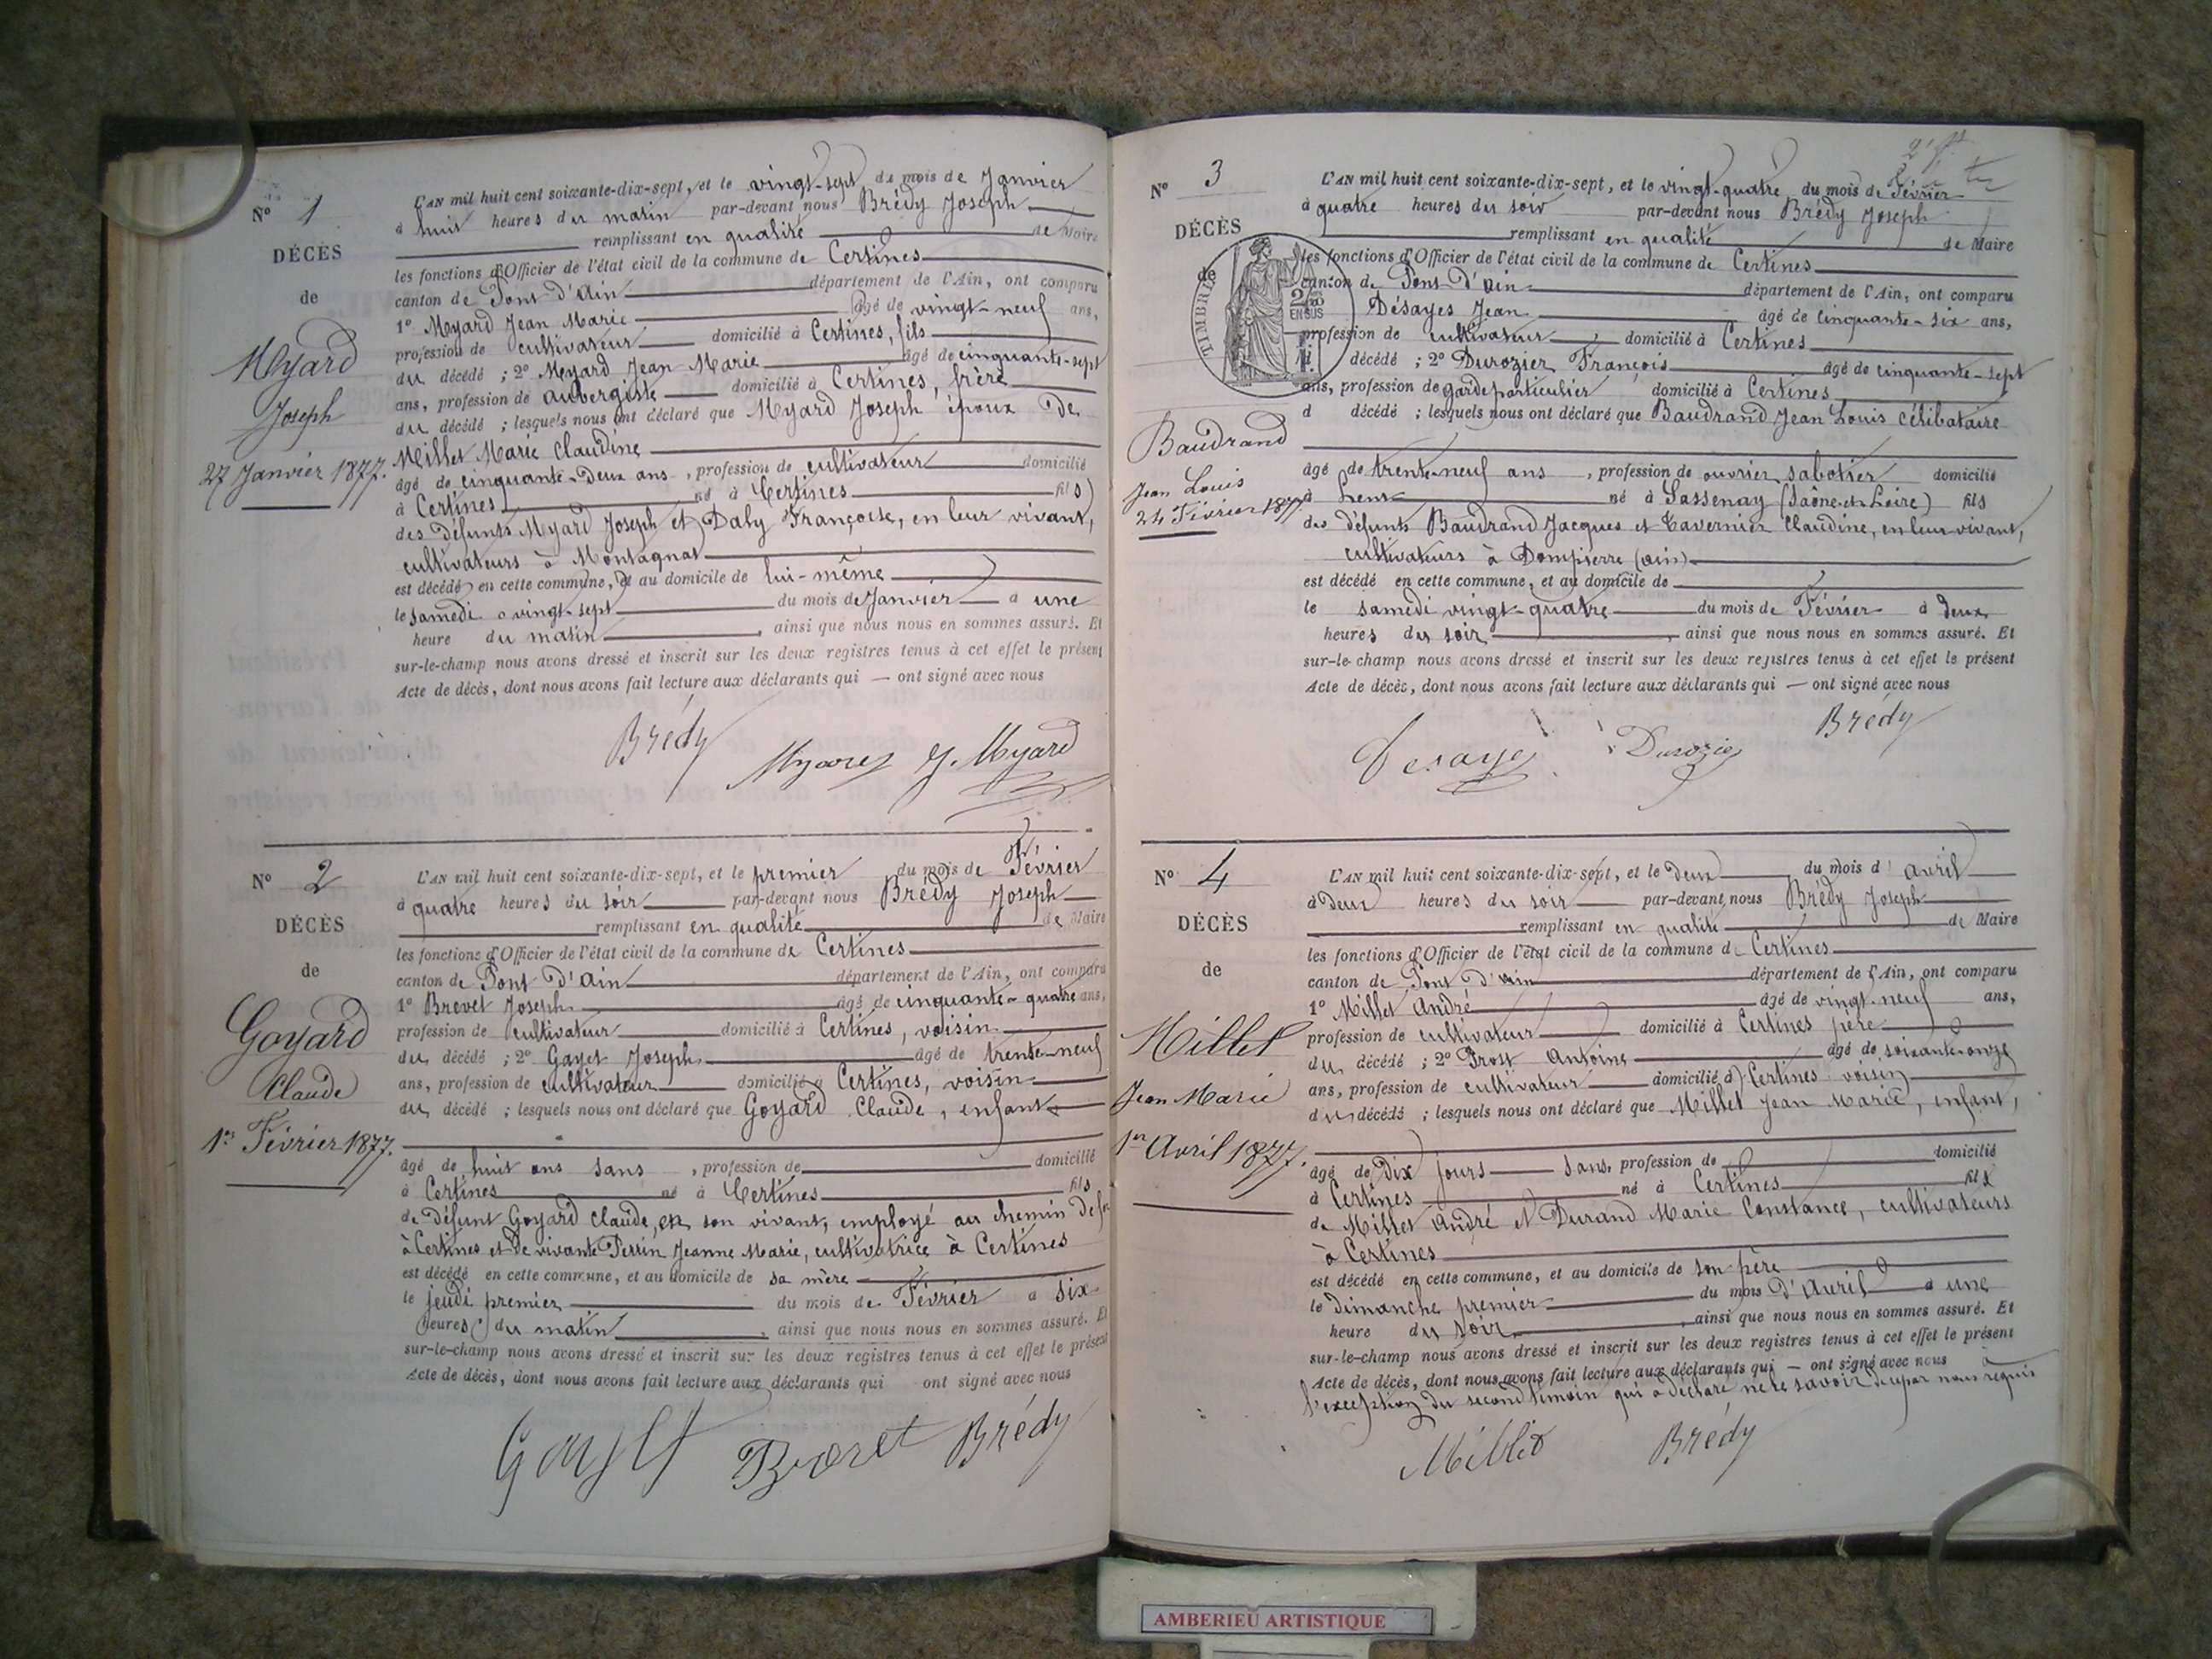 N° 1
DÉCÈS
de
Myard
Joseph
27 Janvier 1877.
L'AN mil huit cent soixante-dix-sept, et le vingt-sept du mois de Janvier
à huit heures du matin par-devant nous Brédy Joseph
remplissant en qualité de Maire
les fonctions d'Officier de l'état civil de la commune de Certines
canton de Pont-d'Ain département de l'Ain, ont comparu
1° Myard Jean Marie âgé de vingt-neuf ans,
profession de cultivateur domicilié à Certines, fils
du décédé ; 2° Myard Jean Marie âgé de cinquante-sept
ans, profession de aubergiste domicilié à Certines, frère
du décédé ; lesquels nous ont déclaré que Myard Joseph époux de
Millet Marie Claudine
âgé de cinquante-deux ans, profession de cultivateur domicilié
à Certines né à Certines fils
des défunts Myard Joseph et Daby Françoise, en leur vivant,
cultivateurs à Montagnat
est décédé en cette commune, et au domicile de lui-même
le samedi vingt-sept du mois de Janvier à une
heure du matin, ainsi que nous nous en sommes assuré. Et
sur-le-champ nous avons dressé et inscrit sur les deux registres tenus à cet effet le présent
Acte de décès, dont nous avons fait lecture aux déclarants qui — ont signé avec nous
Brédy Myard J. Myard
N° 2
DÉCÈS
de
Goyard
Claude
1er Février 1877.
L'AN mil huit cent soixante-dix-sept, et le premier du mois de Février
à quatre heures du soir par-devant nous Brédy Joseph
remplissant en qualité de Maire
les fonctions d'Officier de l'état civil de la commune de Certines
canton de Pont d'Ain département de l'Ain, ont comparu
1° Brevet Joseph âgé de cinquante-quatre ans,
profession de cultivateur domicilié à Certines, voisin
du décédé ; 2° Gayet Joseph âgé de trente-neuf
ans, profession de cultivateur domicilié à Certines, voisin
du décédé ; lesquels nous ont déclaré que Goyard Claude, enfant
âgé de huit ans sans, profession de domicilié
à Certines né à Certines fils
de défunt Goyard Claude, en son vivant, employé au chemin de fer
à Certines et de vivante Perrin Jeanne Marie, cultivatrice à Certines
est décédé en cette commune, et au domicile de sa mère
le jeudi premier du mois de Février à six
heures du matin, ainsi que nous nous en sommes assuré. Et
sur-le-champ nous avons dressé et inscrit sur les deux registres tenus à cet effet le présent
Acte de décès, dont nous avons fait lecture aux déclarants qui ont signé avec nous
Brédy
N° 3
DÉCÈS
de
TIMBRE
2
EN SUS
Baudrand
Jean Louis
24 Février 1877
L'AN mil huit cent soixante-dix-sept, et le vingt-quatre du mois de Février
à quatre heures du soir par-devant nous Brédy Joseph
remplissant en qualité de Maire
les fonctions d'Officier de l'état civil de la commune de Certines
canton de Pont-d'Ain département de l'Ain, ont comparu
Désayes Jean âgé de cinquante-six ans,
profession de cultivateur domicilié à Certines
décédé ; 2° Durozier François âgé de cinquante-sept
ans, profession de garde particulier domicilié à Certines
d décédé ; lesquels nous ont déclaré que Baudrand Jean Louis célibataire
âgé de trente-neuf ans, profession de ouvrier sabotier domicilié
à né à Sassenay (Saône-et-Loire) fils
des défunts Baudrand Jacques et Tavernier Claudine, en leur vivant,
cultivateurs à Dompierre (ain)
est décédé en cette commune, et au domicile de
le samedi vingt-quatre du mois de Février à deux
heures du soir, ainsi que nous nous en sommes assuré. Et
sur-le-champ nous avons dressé et inscrit sur les deux registres tenus à cet effet le présent
Acte de décès, dont nous avons fait lecture aux déclarants qui — ont signé avec nous
Desaye Durozier Brédy
N° 4
DÉCÈS
de
Millet
Jean Marie
1er Avril 1877.
L'AN mil huit cent soixante-dix-sept, et le deux du mois d'avril
à deux heures du soir par-devant nous Brédy Joseph
remplissant en qualité de Maire
les fonctions d'Officier de l'état civil de la commune d Certines
canton de Pont d'ain département de l'Ain, ont comparu
1° Millet André âgé de vingt-neuf ans,
profession de cultivateur domicilié à Certines père
du décédé ; 2° Prost Antoine âgé de soixante-onze
ans, profession de cultivateur domicilié à Certines voisin
du décédé ; lesquels nous ont déclaré que Millet Jean Marie, enfant,
âgé de dix jours sans, profession de domicilié
à Certines né à Certines fils
de Millet André et Durand Marie Constance, cultivateurs
à Certines
est décédé en cette commune, et au domicile de son père
le dimanche premier du mois d'avril à une
heure du soir, ainsi que nous nous en sommes assuré. Et
sur-le-champ nous avons dressé et inscrit sur les deux registres tenus à cet effet le présent
Acte de décès, dont nous avons fait lecture aux déclarants qui — ont signé avec nous à
l'exception du second témoin qui a déclaré ne le savoir de ce par nous requis
Millet Brédy
AMBERIEU ARTISTIQUE